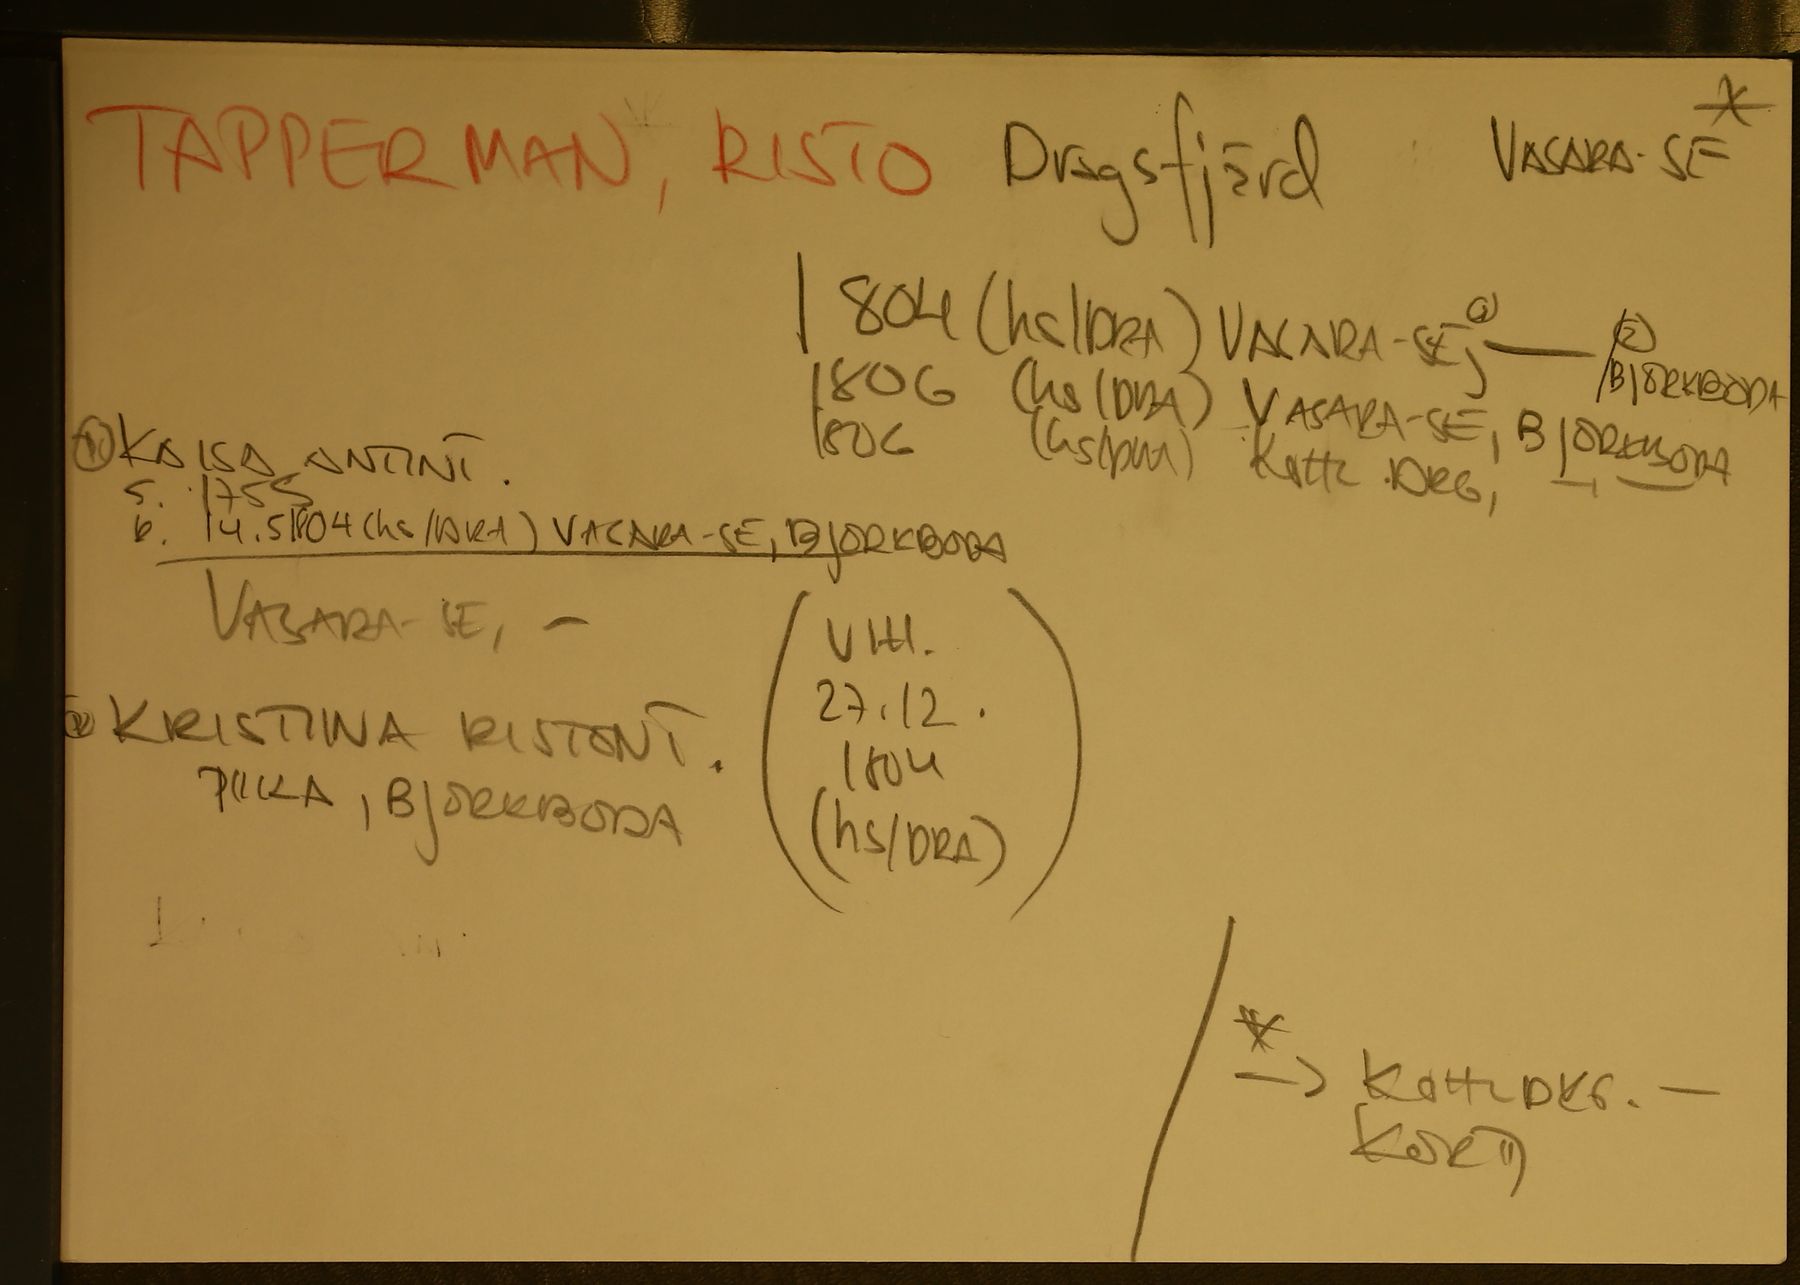 TAPPERMAN, RISTO Dragsfjärd VASARA-SE
1804 (hs/DRA) VASARA-SE, ① — ② BJÖRKBODA
1806 (hs/DRA) VASARA-SE, BJÖRKBODA
1806 (hs/pm) DRG, —
① KAISA ANTINT.
S. 1755
K. 14.5.1804 (hs/DRA) VASARA-SE, BJÖRKBODA
VASARA-SE, —
② KRISTIINA RISTONT.
PIIKA, BJÖRKBODA
(VIH.
27.12.
1804
(hs/DRA))
→ DRG. —
KORTTI